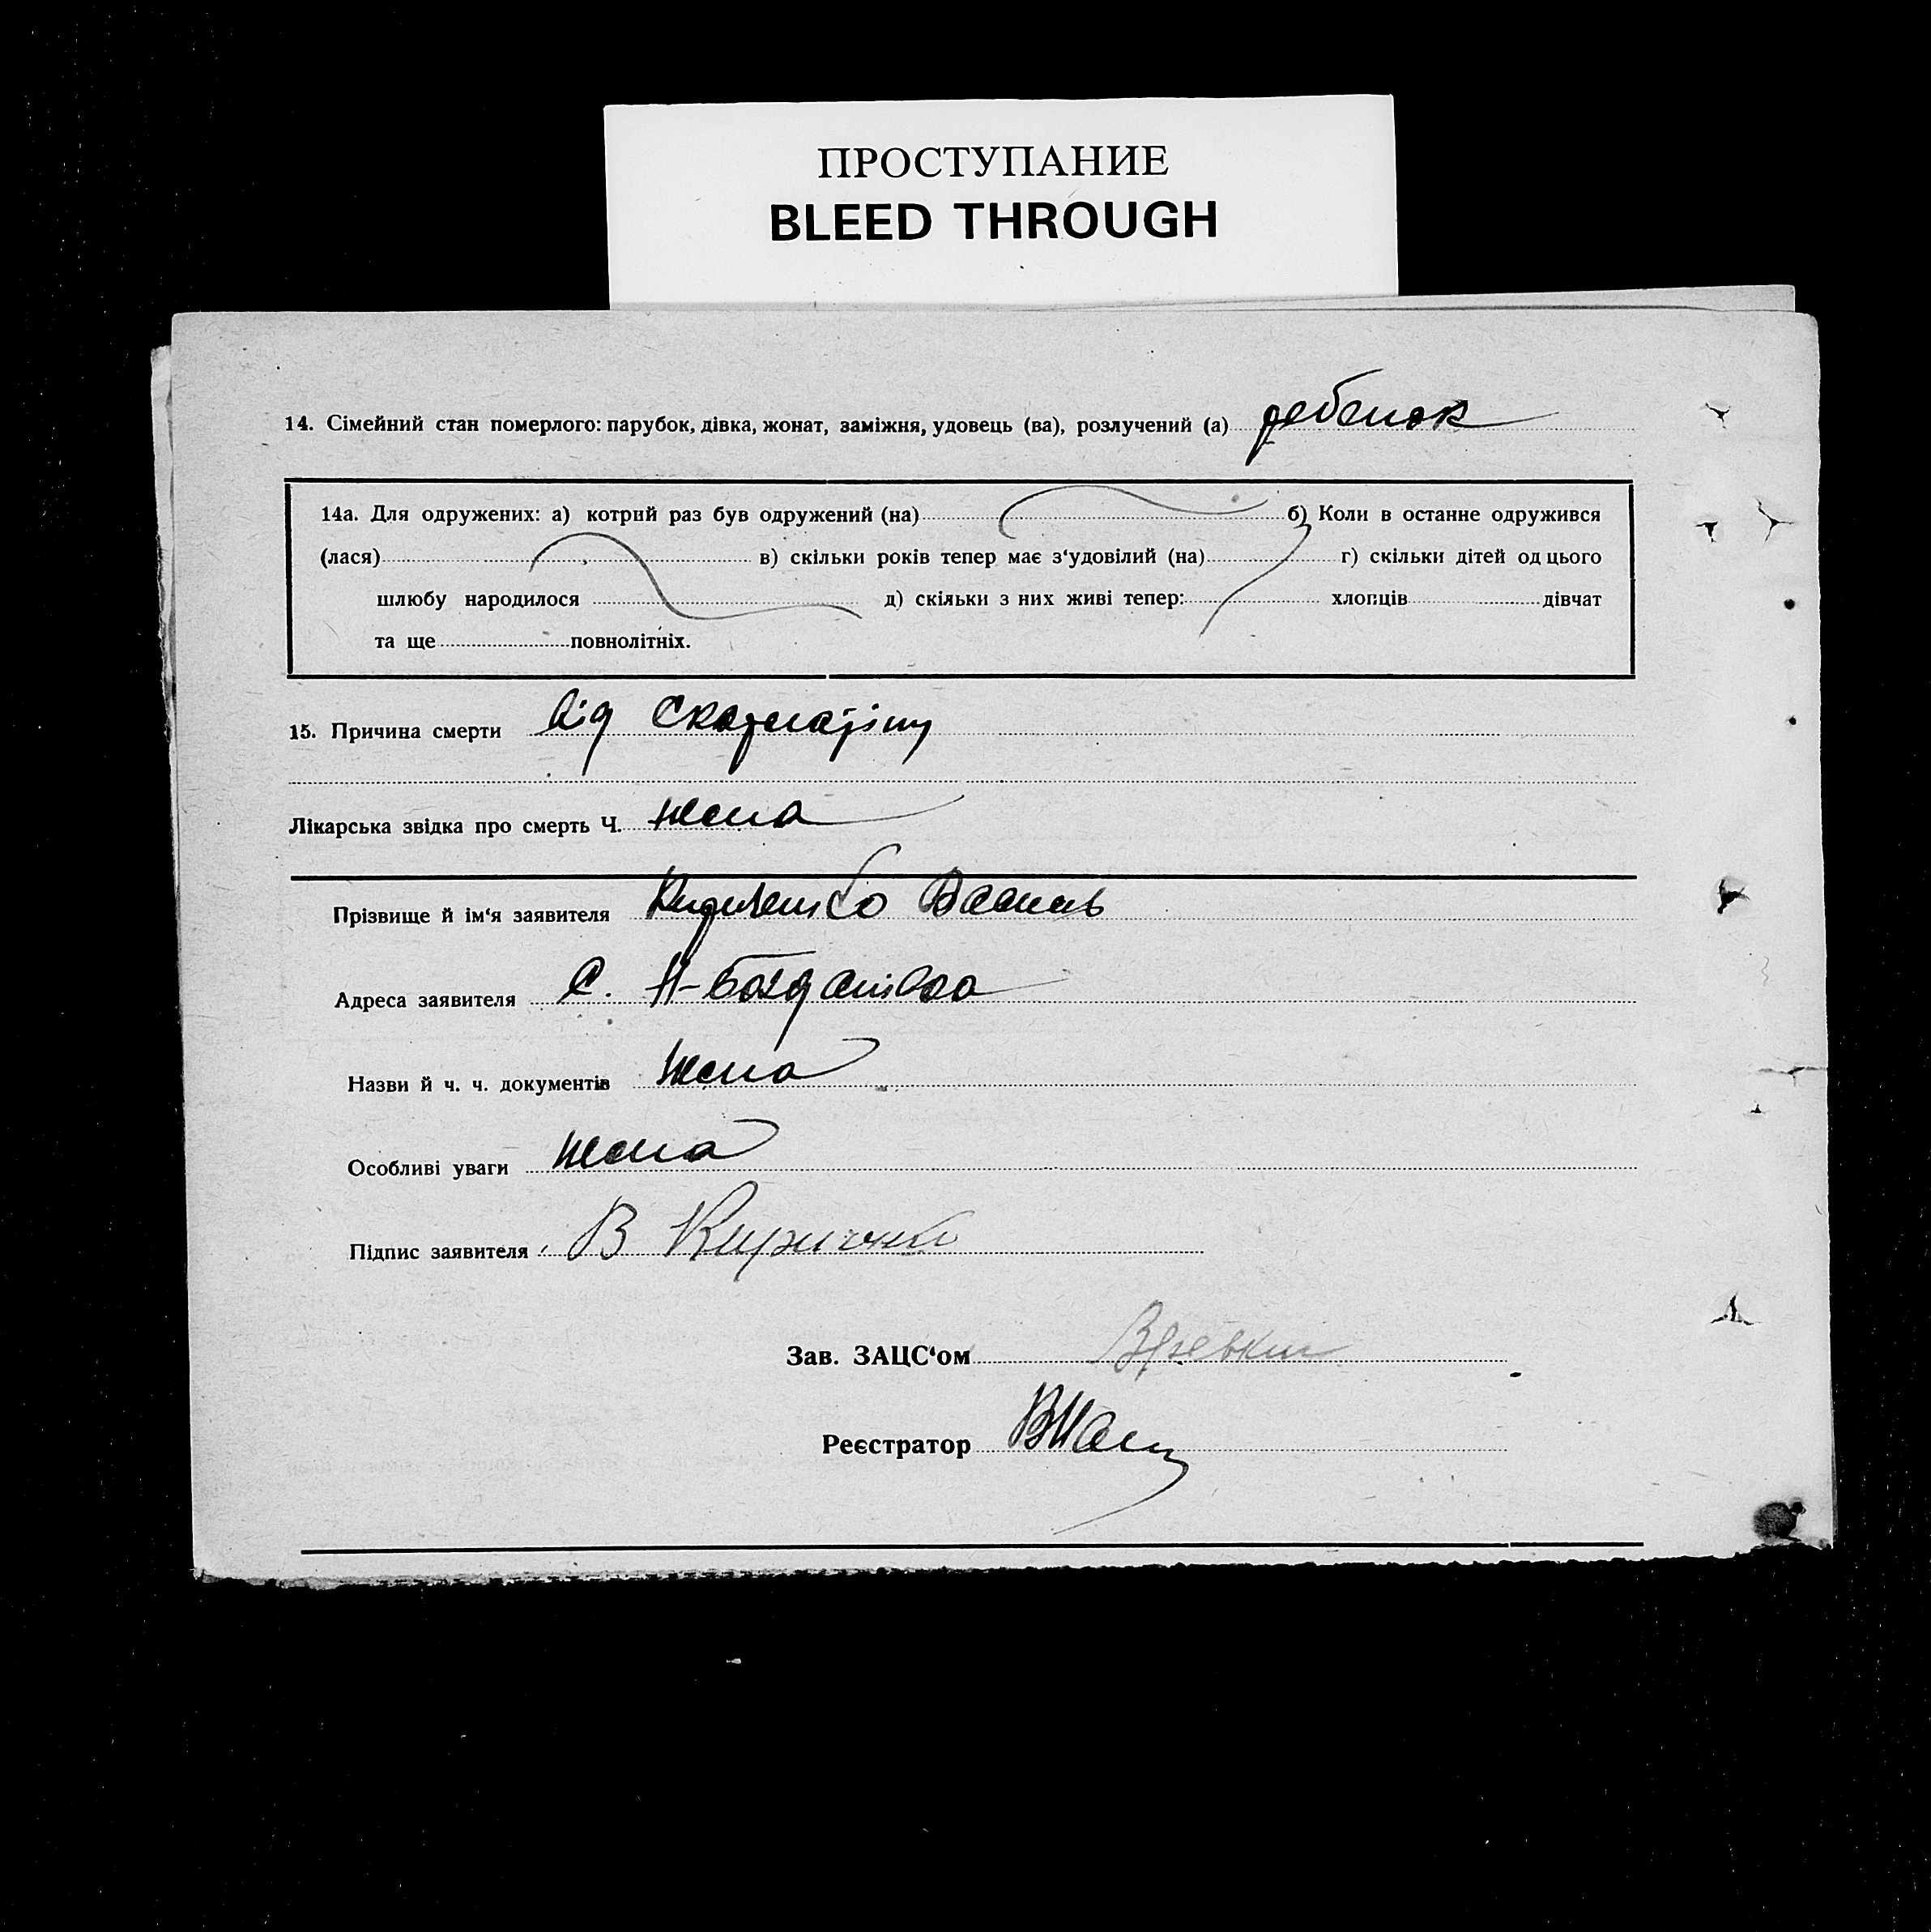 ПРОСТУПАНИЕ
BLEED THROUGH
14. Сімейний стан померлого: парубок, дівка, жонат, заміжня, удовець (ва), розлучений (а) ребенок
14а. Для одружених: а) котрий раз був одружений (на) б) Коли в останне одружився
(лася) в) скільки років тепер має з‘удовілий (на) г) скільки дітей од цього
шлюбу народилося д) скільки з них живі тепер: хлопців дівчат
та ще повнолітніх.
15. Причина смерти від скарлатіни
Лікарська звідка про смерть Ч. нема
Прізвище й ім‘я заявителя Василь
Адреса заявителя С. Н-Богданівка
Назви й ч. ч. документів нема
Особливі уваги нема
Підпис заявителя В
Зав. ЗАЦС‘ом
Реєстратор